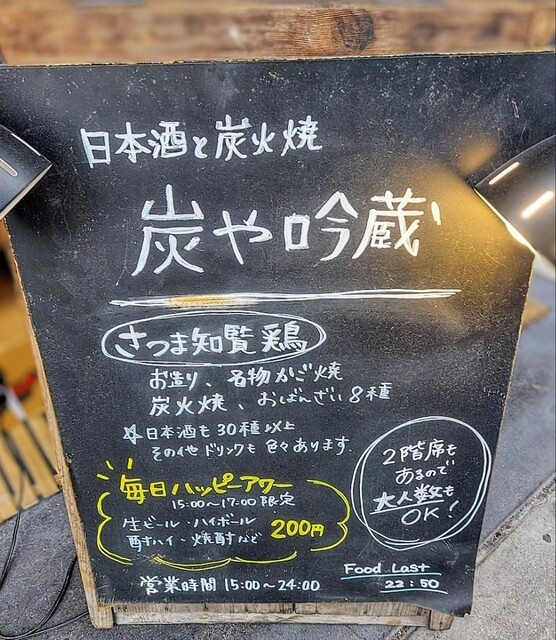 日本酒と炭火焼
炭や吟蔵
さつま知覧鶏
お造り、名物かご焼
炭火焼、おばんざい8種
☆日本酒も30種以上
その他ドリンクも色々あります。
毎日ハッピーアワー
15:00～17:00限定
生ビール・ハイボール
酎ハイ・焼酎など 200円
2階席も
あるので
大人数も
OK!
営業時間 15:00～24:00
Food Last
22:50